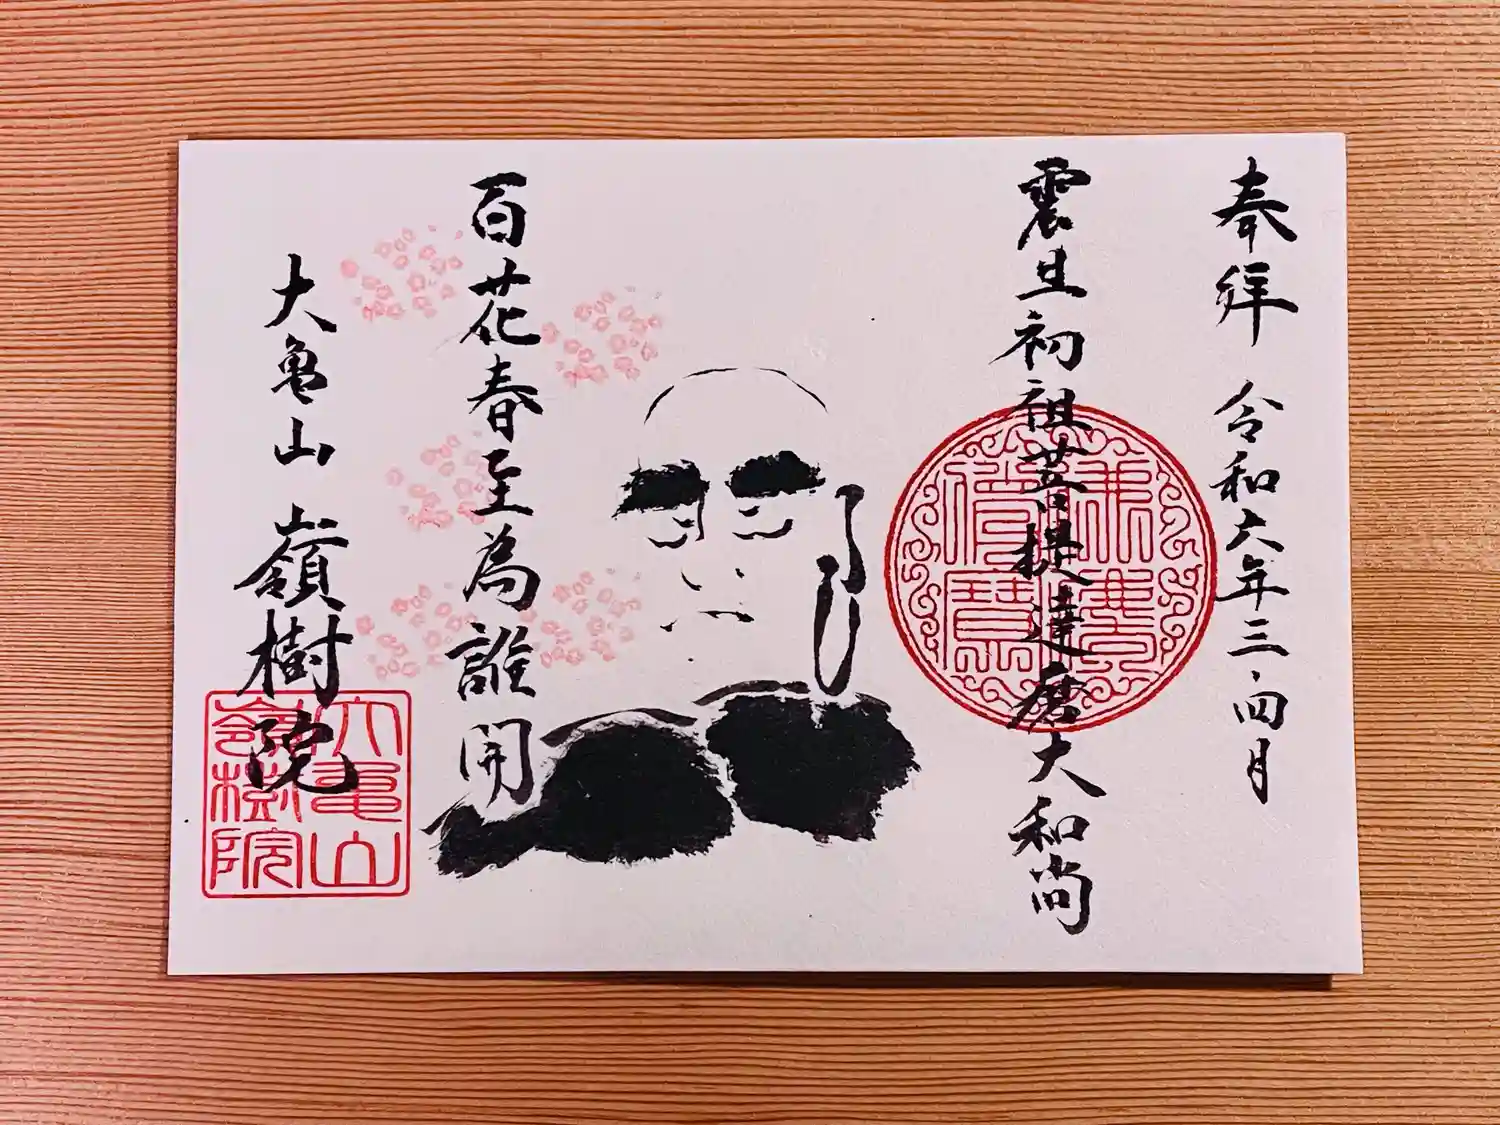 奉拝 令和六年三、四月
震旦初祖菩提達磨大和尚
佛法僧寶
百花春至為誰開
大亀山 嶺樹院
大亀山
嶺樹院